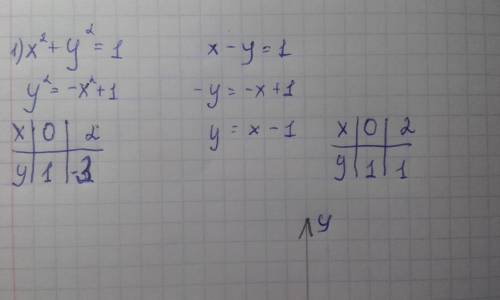 1) x² + y² = 1
y² = -x² + 1
x | 0 | 2
y | 1 | -3
x - y = 1
-y = -x + 1
y = x - 1
x | 0 | 2
y | 1 | 1
y